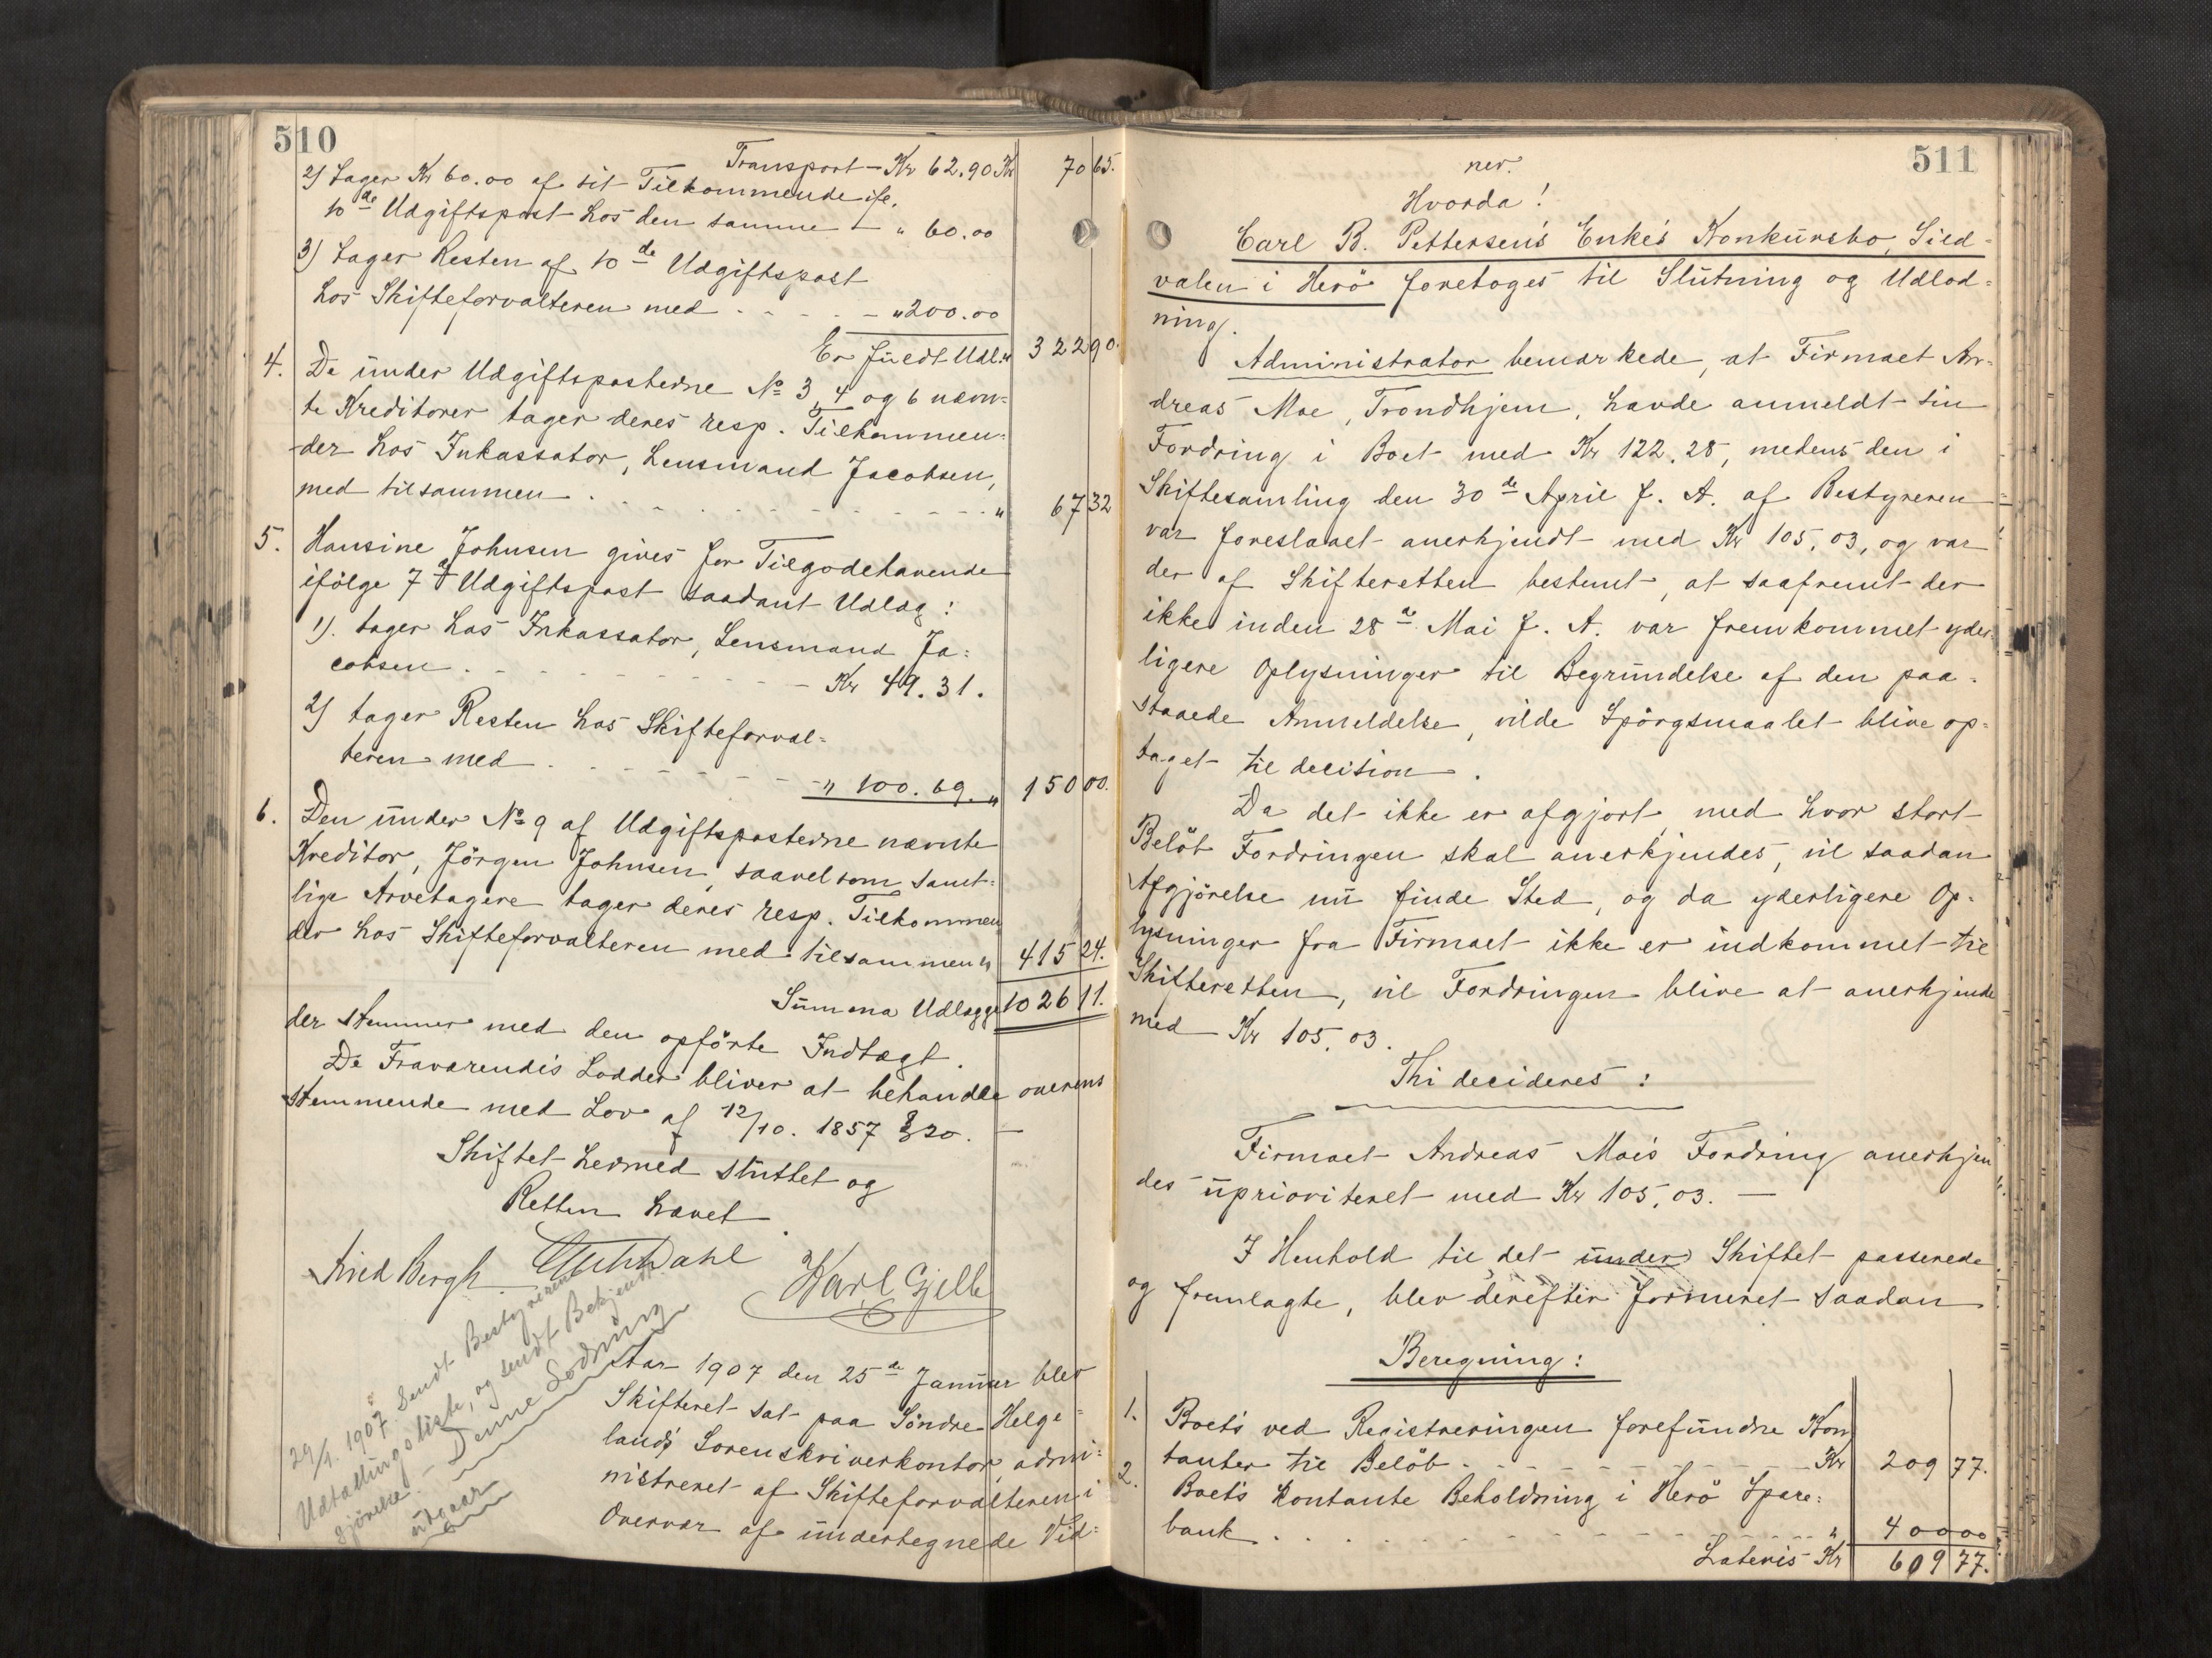 510
Transport - Kr 62.90 Kr 70 65.
2) Tager Kr 60.00 af sit Tilkommende ifl.
10de Udgiftspost hos den samme - " 60.00
3) Tager Resten af 10de Udgiftspost
hos Skifteforvalteren med - - - - - " 200.00
Er fuldt Udl. " 322 90.
4. De under Udgiftsposterne No 3, 4 og 6 nævn=
te Kreditorer tager deres resp. Tilkommen=
der hos Inkassator, Lensmand Jacobsen,
med tilsammen . - - - - - - - - - " 67 32
5. Hansine Johnsen gives for Tilgodehavende
ifölge 7de Udgiftspost saadant Udlæg:
1). tager hos Inkassator, Lensmand Ja=
cobsen . - - - - - - - - - Kr 49.31.
2) tager Resten hos Skifteforval=
teren med . - - - - - - - " 100.69. " 150 00.
6. Den under No 9 af Udgiftsposterne nævnte
Kreditor, Jörgen Johnsen, saavelsom samt=
lige Arvetagere tager deres resp. Tilkommen
der hos Skifteforvalteren med tilsammen " 415 24.
Summa Udlægge 1026 11.
der stemmer med den opförte Indtægt.
De Fraværendes Lodder bliver at behandle overens
stemmende med Lov af 12/10. 1857 § 20. —
Skiftet hermed sluttet og
Retten hævet.
Arild Bergh. Dahl Karl Gjelle
29/1. 1907. Sendt Bestyreren
Udtællingsliste, og sendt Bekjendt
gjörelse. - Denne Lodning
udgaar
Aar 1907 den 25de Januar blev
Skifteret sat paa Söndre Helge=
lands Sorenskriverkontor, admi=
nistreret af Skifteforvalteren i
Overvær af undertegnede Vid=
511
ner.
Hvorda!
Carl B. Pettersens Enkes Konkursbo, Sild=
valen i Herö foretoges til Slutning og Udlod=
ning.
Administrator bemærkede, at Firmaet An=
dreas Moe, Trondhjem, havde anmeldt sin
Fordring i Boet med Kr 122.28, medens den i
Skiftesamling den 30de April f. A. af Bestyreren
var foreslaaet anerkjendt med Kr 105.03, og var
der af Skifteretten bestemt, at saafremt der
ikke inden 28de Mai f. A. var fremkommet yder=
ligere Oplysninger til Begrundelse af den paa=
staaede Anmeldelse, vilde Spörgsmaalet blive op=
taget til decision.
Da det ikke er afgjort, med hvor stort
Belöb Fordringen skal anerkjendes, vil saadan
Afgjörelse nu finde Sted, og da yderligere Op=
lysninger fra Firmaet ikke er indkommet til
Skifteretten, vil Fordringen blive at anerkjende
med Kr 105.03.
Thi decideres:
Firmaet Andreas Moes Fordring anerkjen
des uprioriteret med Kr 105.03. —
I Henhold til det under Skiftet passerede
og fremlagte, blev derefter formeret saadan
Beregning:
1. Boets ved Registreringen forefundne Kon
tanter til Belöb . - - - - - - - Kr 209 77.
2. Boets kontante Beholdning i Herö Spare=
bank . . . - - - - - - - - " 400 00
Lateris Kr 609 77.